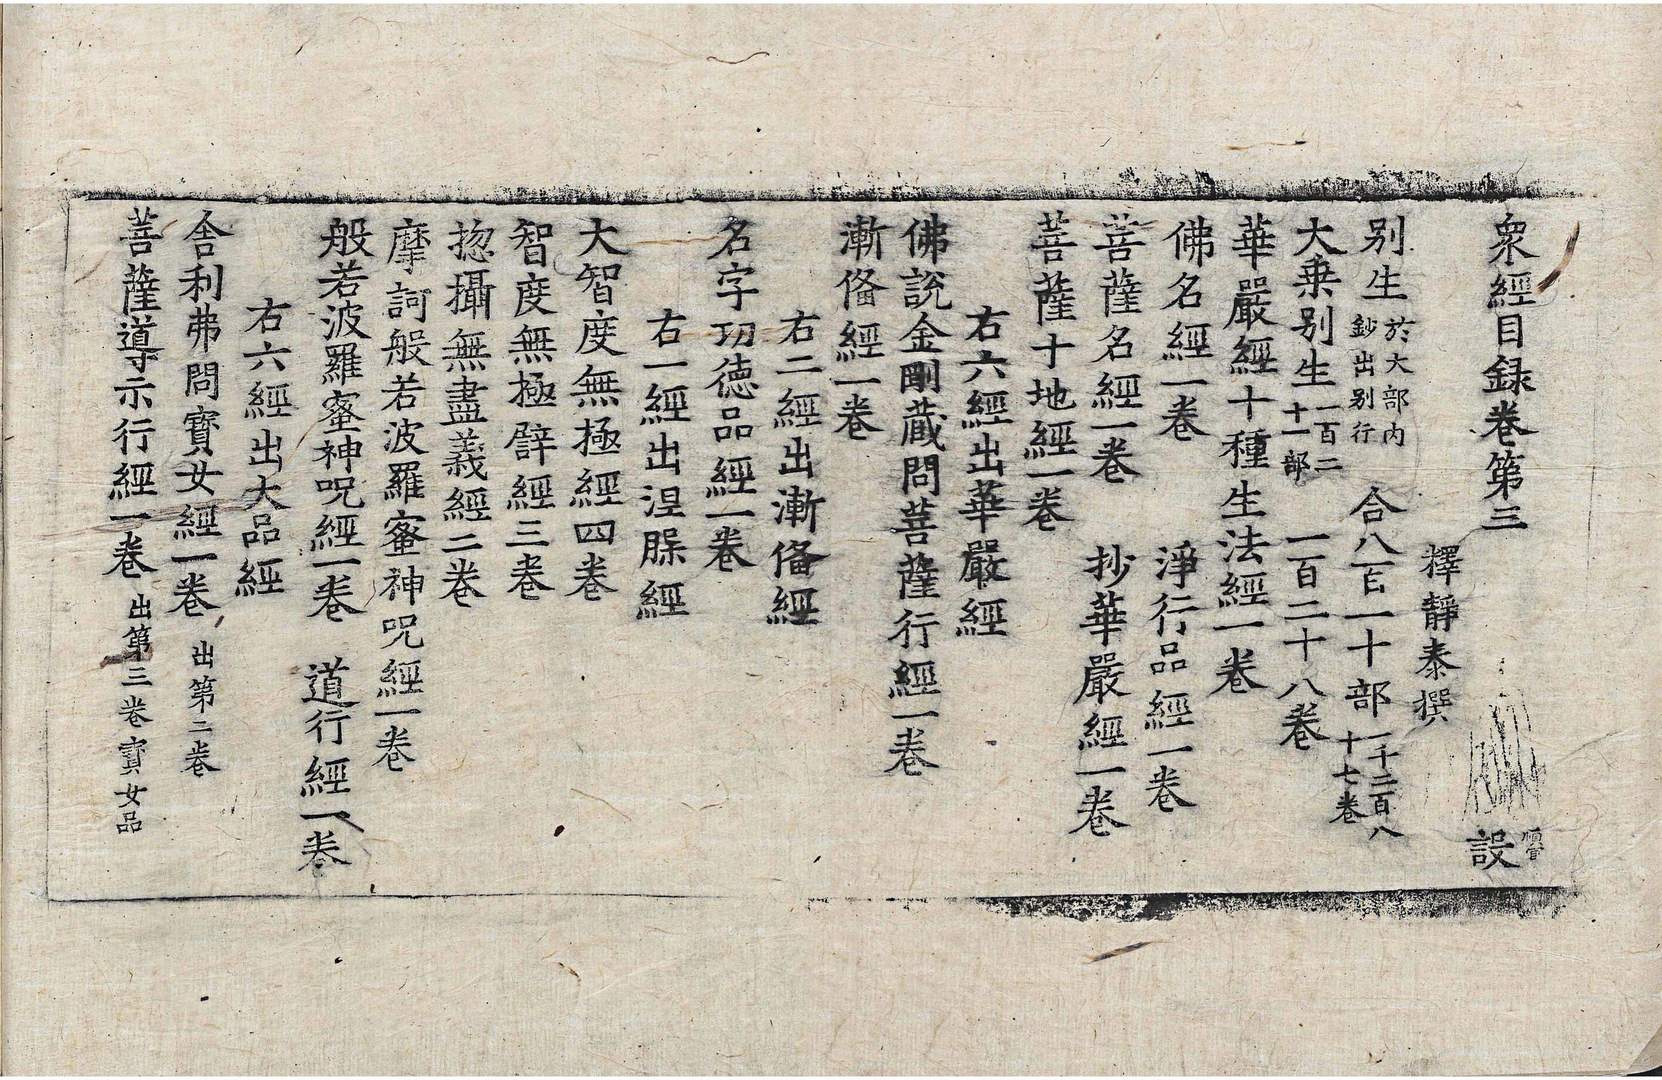 衆經目録卷第三 設
釋靜泰撰
別生 於大部内鈔出別行 合八百一十部 一千二百八十七卷
大乗別生 一百二十一部 一百二十八卷
華嚴經十種生法經一卷
佛名經一卷 淨行品經一卷
菩薩名經一卷 抄華嚴經一卷
菩薩十地經一卷
右六經出華嚴經
佛說金剛蔵問菩薩行經一卷
漸俻經一卷
右二經出漸俻經
名字功德品經一卷
右一經出涅槃經
大智度無極經四卷
智度無極譬經三卷
惣攝無盡義經二卷
摩訶般若波羅蜜神呪經一卷
般若波羅蜜神呪經一卷 道行經一卷
右六經出大品經
舎利弗問寶女經一卷 出第二卷
菩薩導示行經一卷 出第三卷寶女品